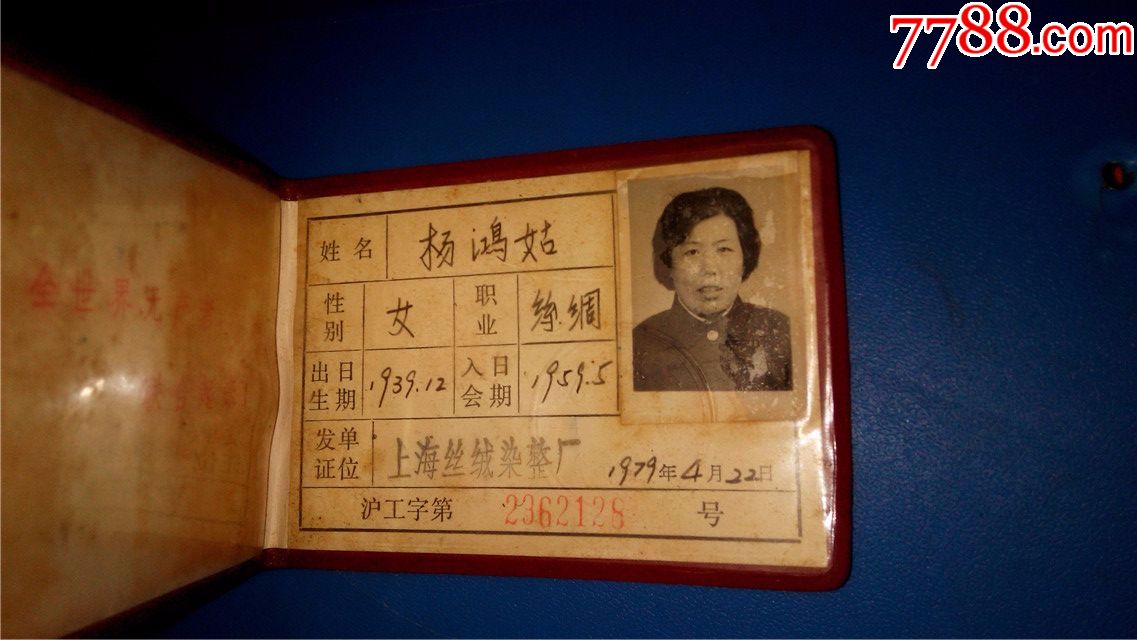 7788.com
全世界无产
姓名 杨鸿姑
性别 女 职业 丝绸
出生日期 1939.12 入会日期 1959.5
发证单位 上海丝绒染整厂 1979年4月22日
沪工字第 2362128 号